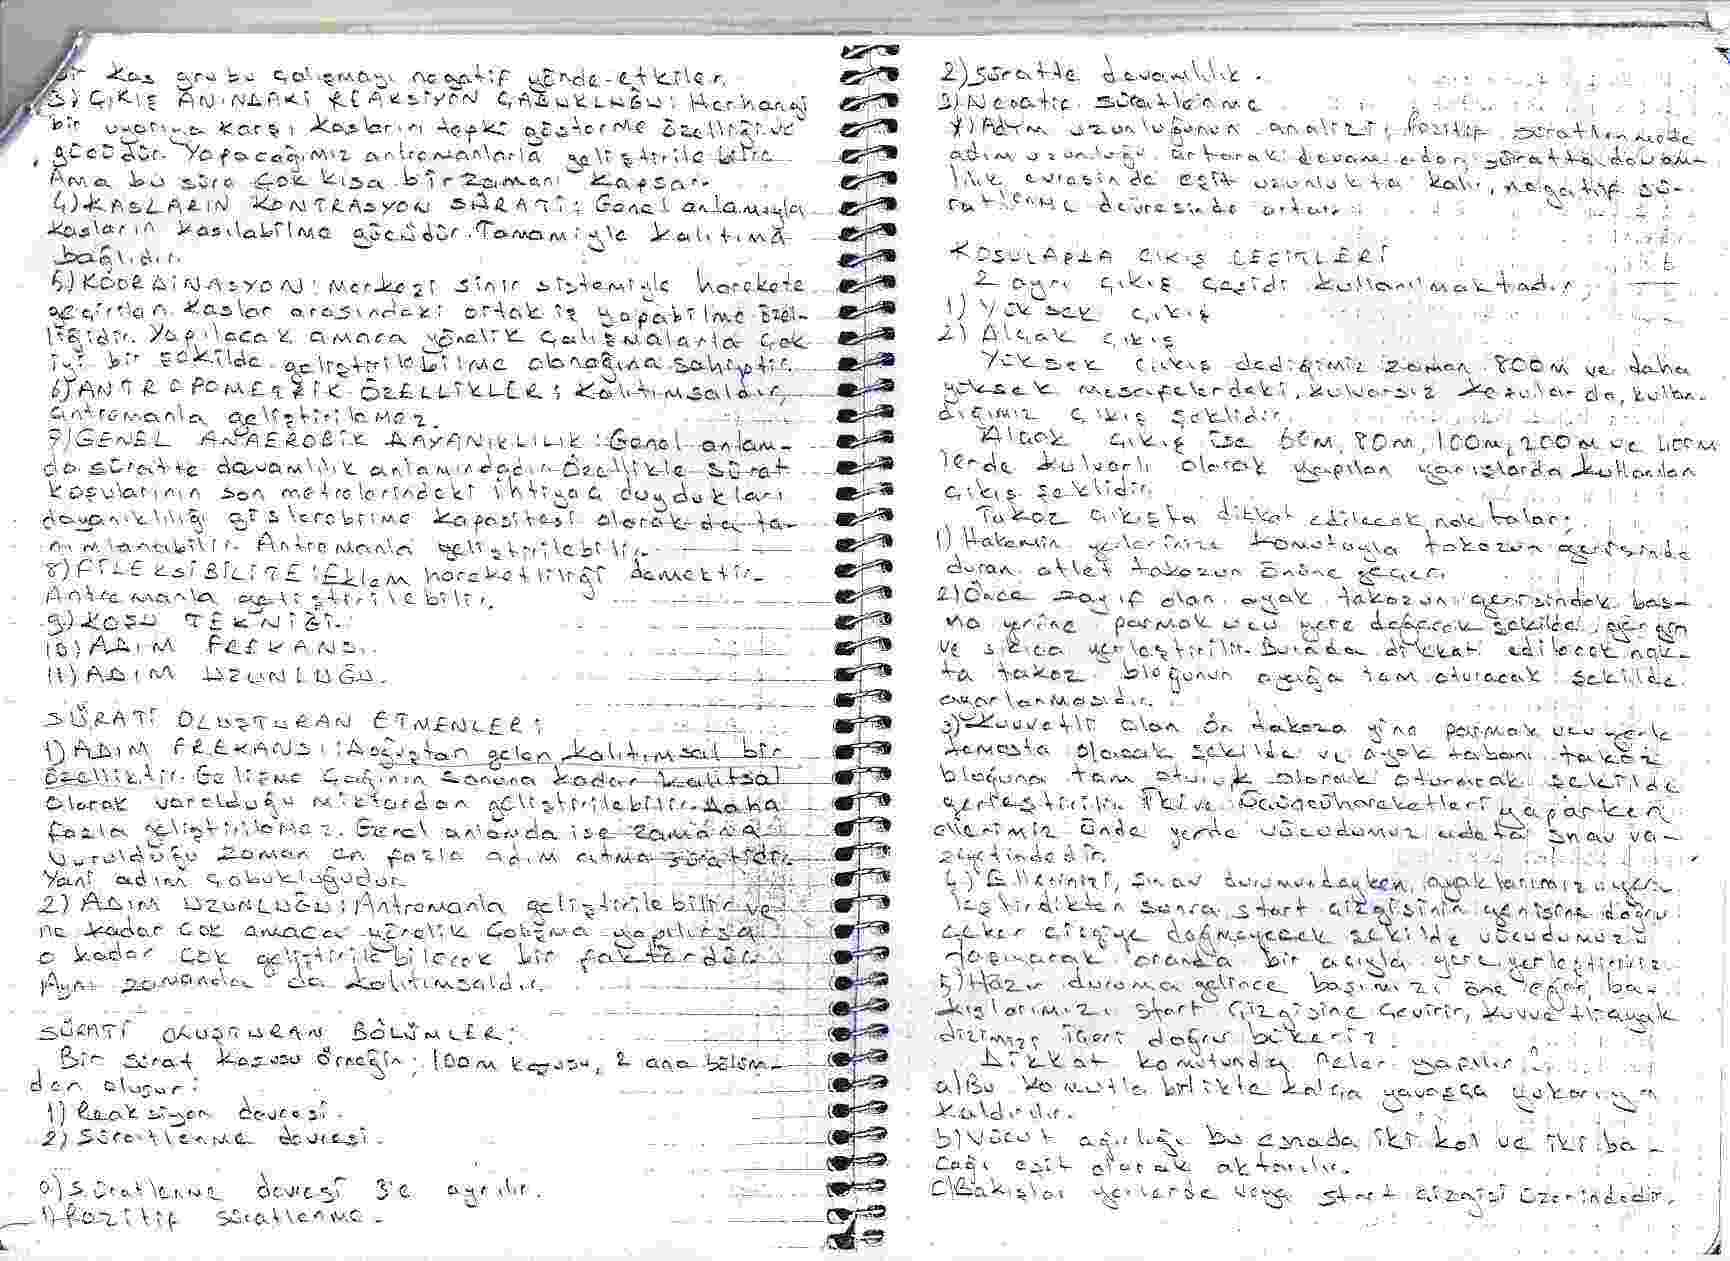 bir kas grubu çalışmayı negatif yönde etkiler.
3) ÇIKIŞ ANINDAKİ REAKSİYON ÇABUKLUĞU: Herhangi
bir uyarıya karşı kasların tepki gösterme özelliği ve
gücüdür. Yapacağımız antromanlarla geliştirilebilir.
Ama bu süre çok kısa bir zamanı kapsar.
4) KASLARIN KONTRASYON SÜRATİ: Genel anlamıyla
kasların kasılabilme gücüdür. Tamamiyle kalıtıma
bağlıdır.
5) KOORDİNASYON: Merkezi sinir sistemiyle harekete
geçirilen kaslar arasındaki ortak iş yapabilme özel-
liğidir. Yapılacak amaca yönelik çalışmalarla çok
iyi bir şekilde geliştirilebilme olanağına sahiptir.
6) ANTROPOMETRİK ÖZELLİKLER: Kalıtımsaldır,
antromanla geliştirilemez.
7) GENEL ANAEROBİK DAYANIKLILIK: Genel anlam-
da süratte davamlılık anlamındadır. Özellikle sürat
koşularının son metrelerindeki ihtiyaç duydukları
dayanıklılığı gösterebilme kapasitesi olarak da ta-
nımlanabilir. Antromanla geliştirilebilir.
8) FİLEKSİBİLİTE: Eklem hareketliliği demektir.
Antremanla geliştirilebilir.
9) KOŞU TEKNİĞİ.
10) ADIM FREKANSI.
11) ADIM UZUNLUĞU.
SÜRATİ OLUŞTURAN ETMENLER:
1) ADIM FREKANSI: Doğuştan gelen kalıtımsal bir
özelliktir. Gelişme çağının sonuna kadar kalıtsal
olarak varolduğu miktardan geliştirilebilir. Daha
fazla geliştirilemez. Genel anlamda ise zamana
vurulduğu zaman en fazla adım atma süratidir.
Yani adım çabukluğudur.
2) ADIM UZUNLUĞU: Antromanla geliştirilebilir ve
ne kadar çok amaca yönelik çalışma yapılırsa
o kadar çok geliştirilebilecek bir faktördür.
Aynı zamanda da kalıtımsaldır.
SÜRATİ OLUŞTURAN BÖLÜMLER:
Bir sürat koşusu örneğin; 100m koşusu, 2 ana bölüm-
den oluşur:
1) Reaksiyon devresi.
2) Süratlenme devresi.
a) Süratlenme devresi 3'e ayrılır.
1) Pozitif süratlenme.
2) Süratte devamlılık.
3) Negatif süratlenme
4) Adım uzunluğunun analizi; Pozitif süratlenmede
adım uzunluğu artarak devam eder, süratte devam-
lılık evresinde eşit uzunlukta kalır, negatif sü-
ratlenme devresinde artar.
KOŞULARDA ÇIKIŞ ÇEŞİTLERİ
2 ayrı çıkış çeşidi kullanılmaktadır;
1) Yüksek çıkış
2) Alçak çıkış
Yüksek çıkış dediğimiz zaman 800m ve daha
yüksek mesafelerdeki, kulvarsız koşularda, kullan-
dığımız çıkış şeklidir.
Alçak çıkış ise 60m, 80m, 100m, 200m ve 400m
lerde kulvarlı olarak yapılan yarışlarda kullanılan
çıkış şeklidir.
Takoz çıkışta dikkat edilecek noktalar;
1) Hakemin yerlerinize komutuyla takozun gerisinde
duran atlet takozun önüne geçer.
2) Önce zayıf olan ayak takozun gerisindek bas-
ma yerine parmak ucu yere değecek şekilde, gergin
ve sıkıca yerleştirilir. Burada dikkat edilecek nok-
ta takoz bloğunun ayağa tam oturacak şekilde
ayarlanmasıdır.
3) Kuvvetli olan ön takoza yine parmak ucu yerle
temasta olacak şekilde ve ayak tabanı takoz
bloğuna tam oturuk olarak oturacak şekilde
yerleştirilir. İki ve üçüncü hareketleri yaparken
ellerimiz önde yerde vücudumuz adeta şınav va-
ziyetindedir.
4) Ellerimizi, şınav durumundayken, ayaklarımızı yer-
leştirdikten sonra start çizgisinin gerisine doğru
çeker çizgiye değmeyecek şekilde vücudumuzu
taşıyacak oranda bir açıyla yere yerleştiririz.
5) Hazır duruma gelince başımızı öne eğer, ba-
kışlarımızı start çizgisine çevirir, kuvvetli ayak
dizimizi içeri doğru bükeriz.
Dikkat komutunda neler yapılır?
a) Bu komutla birlikte kalça yavaşça yukarıya
kaldırılır.
b) Vücut ağırlığı bu esnada iki kol ve iki ba-
cağı eşit olarak aktarılır.
c) Bakışlar yerlerde veya start çizgisi üzerindedir.